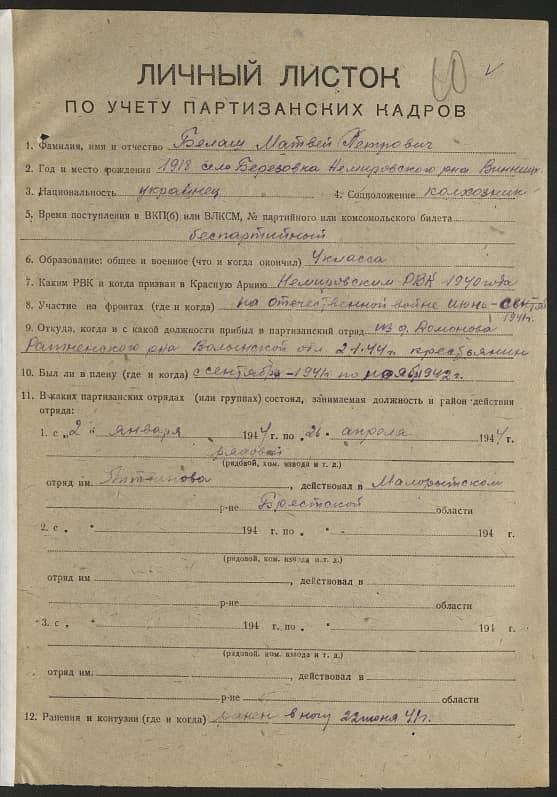 60
ЛИЧНЫЙ ЛИСТОК
ПО УЧЕТУ ПАРТИЗАНСКИХ КАДРОВ
1. Фамилия, имя и отчество Белаш Матвей Петрович
2. Год и место рождения 1918 село Березовка Немировского рна Винниц.
3. Национальность украинец 4. Соцположение колхозник
5. Время поступления в ВКП(б) или ВЛКСМ, № партийного или комсомольского билета
беспартийный
6. Образование: общее и военное (что и когда окончил) 4 класса
7. Каким РВК и когда призван в Красную Армию Немировским РВК 1940 года
8. Участие на фронтах (где и когда) на отечественной войне июнь-
1941г.
9. Откуда, когда и с какой должности прибыл в партизанский отряд из д.
Ратненского рна Волынской обл. 2-1.44г. крестьянин
10. Был ли в плену (где и когда) с сентября-1941 по ноябр 1942г.
11. В каких партизанских отрядах (или группах) состоял, занимаемая должность и район действия
отряда:
1. с „2" января 1944 г. по „26" апреля 1944 г.
рядовой
(рядовой, ком. взвода и т. д.)
отряд им. , действовал в Малоритском
р-не Брестской области
2. с „ " 194 г. по „ " 194 г.
(рядовой, ком. взвода и т. д.)
отряд им. , действовал в
р-не области
3. с „ " 194 г. по „ " 194 г.
(рядовой, ком. взвода и т. д.)
отряд им. , действовал в
р-не области
12. Ранения и контузии (где и когда) ранен в ногу 22 июня 41г.